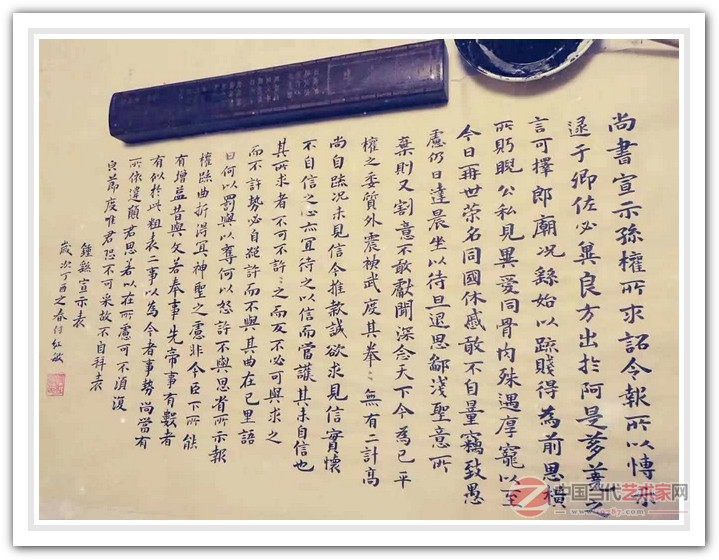 尚書宣示孫權所求詔令報所以博示
逮于卿佐必冀良方出於阿是芻蕘之
言可擇郎廟況繇始以疏賤得為前恩橫
所眄睨公私見異愛同骨肉殊遇厚寵以至
今日再世榮名同國休慼敢不自量竊致愚
慮仍日達晨坐以待旦退思鄙淺聖意所
棄則又割意不敢獻聞深念天下今為已平
權之委質外震神武度其拳〻無有二計高
尚自疏況未見信今推款誠欲求見信實懷
不自信之心亦宜待之以信而當護其未自信也
其所求者不可不許〻之而反不必可與求之
而不許勢必自絕許而不與其曲在己里語
曰何以罰與以奪何以怒許不與思省所示報
權疏曲折得宜神聖之慮非今臣下所能
有增益昔與文若奉事先帝事有數者
有似於此粗表二事以為今者事勢尚當有
所依違願君思省以在所慮可不須復
良節度唯君恐不可采故不自拜表
鍾繇宣示表
歲次丁酉之春付紅敏
中国当代艺术家网